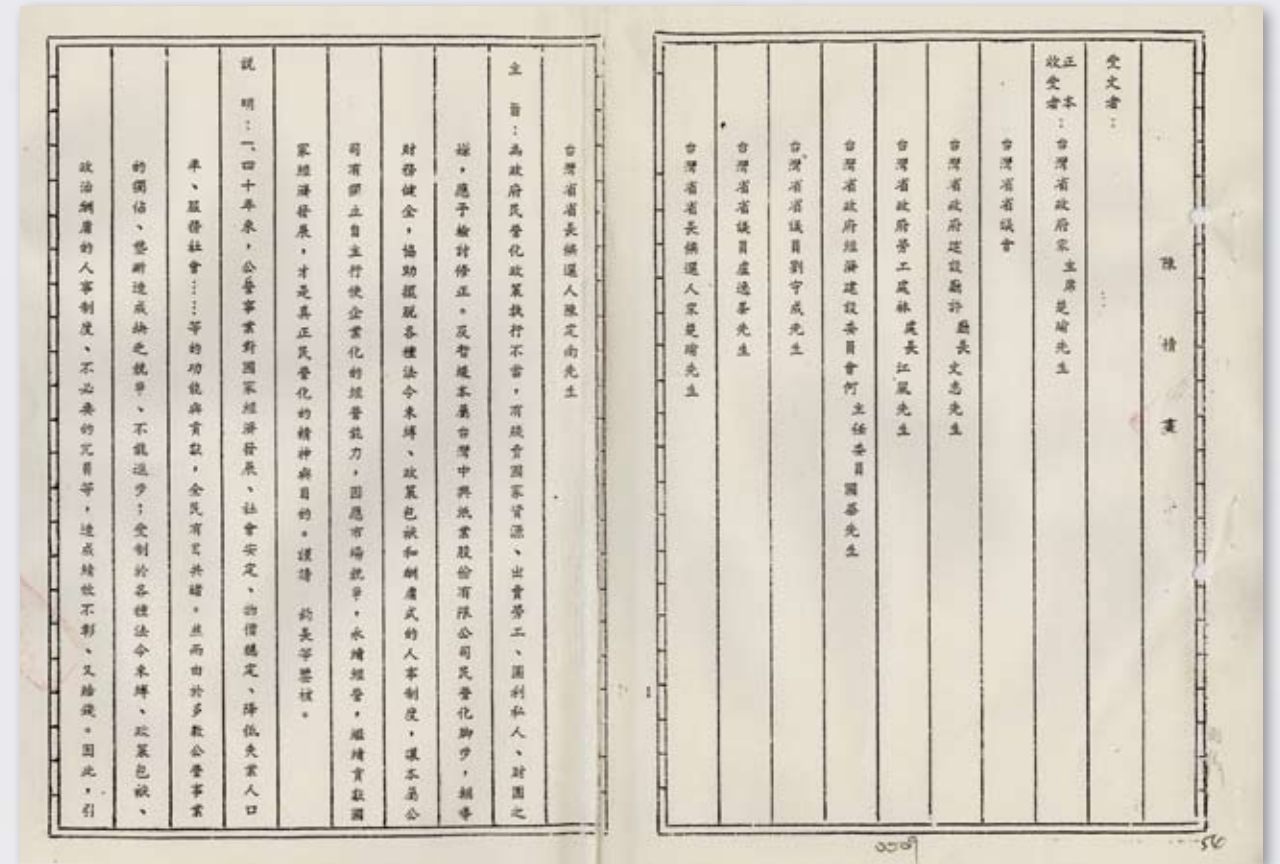 陳情書
受文者：
正本收受者：台灣省政府宋主席楚瑜先生
台灣省省議會
台灣省政府建設廳許廳長文志先生
台灣省政府勞工處林處長江風先生
台灣省政府經濟建設委員會何主任委員國華先生
台灣省省議員劉守成先生
台灣省省議員盧逸峯先生
台灣省省長候選人宋楚瑜先生
台灣省省長候選人陳定南先生
主旨：為政府民營化政策執行不當，有賤賣國家資源、出賣勞工、圖利私人、財團之
嫌，應予檢討修正。及暫緩本屬台灣中興紙業股份有限公司民營化腳步，輔導
財務健全，協助擺脫各種法令束縛、政策包袱和酬庸式的人事制度，讓本屬公
司有獨立自主行使企業化的經營能力，因應市場競爭，永續經營，繼續貢獻國
家經濟發展，才是真正民營化的精神與目的。謹請　鈞長等鑒核。
說明：一、四十年來，公營事業對國家經濟發展、社會安定、物價穩定、降低失業人口
率、服務社會……等的功能與貢獻，全民有目共睹。然而由於多數公營事業
的獨佔、壟斷造成缺乏競爭、不能進步；受制於各種法令束縛、政策包袱、
政治酬庸的人事制度、不必要的冗員等，造成績效不彰、又賠錢。因此，引
54